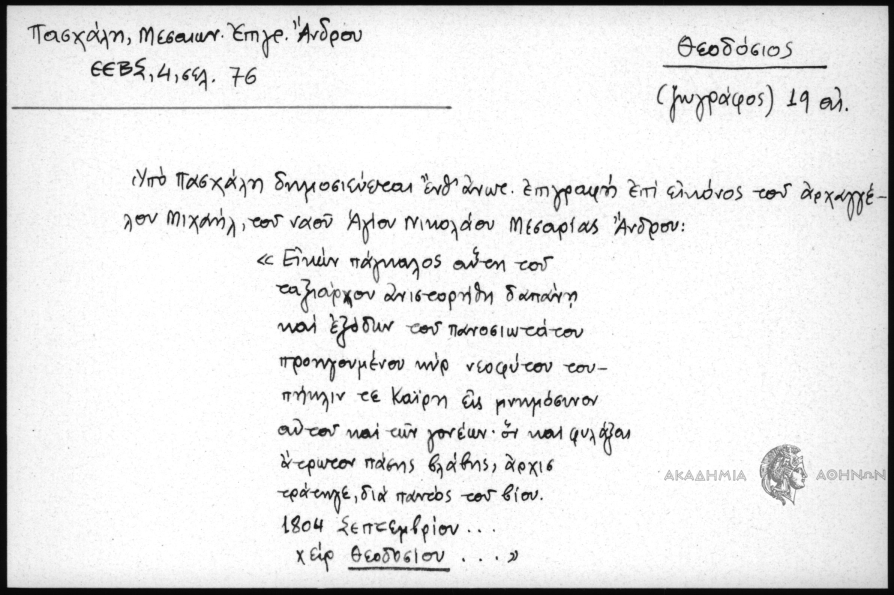 Πασχάλη, Μεσαιων. Ἐπιγρ. Ἄνδρου
ΕΕΒΣ, 4, σελ. 76
Θεοδόσιος
(ζωγράφος) 19 αἰ.
Ὑπό Πασχάλη δημοσιεύεται ἔνθ' ἀνωτ. ἐπιγραφή ἐπί εἰκόνος τοῦ ἀρχαγγέ-
λου Μιχαήλ, τοῦ ναοῦ Ἁγίου Νικολάου Μεσαρίας Ἄνδρου:
« Εἰκών πάγκαλος αὕτη τοῦ
ταξιάρχου ἀνιστορήθη δαπάνῃ
καί ἐξόδων τοῦ πανοσιωτάτου
προηγουμένου κύρ νεοφύτου του-
πήκλιν τε Καΐρη εἰς μνημόσυνον
αὐτοῦ καί τῶν γονέων· ὅν καί φυλάξαι
ἄτρωτον πάσης βλάβης, ἀρχισ
τράτηγε, διά παντός τοῦ βίου.
1804 Σεπτεμβρίου . . .
χείρ Θεοδοσίου . . . . »
ΑΚΑΔΗΜΙΑ ΑΘΗΝΩΝ